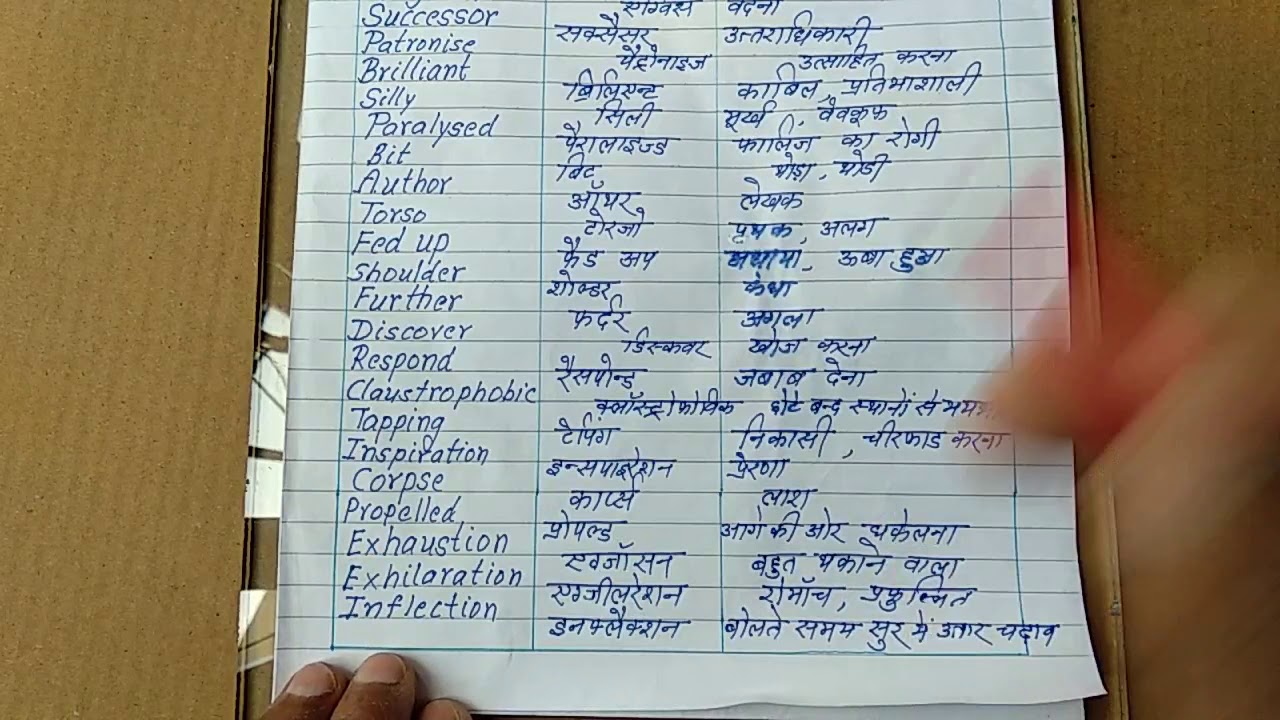 वदना
Successor सक्सैसर उत्तराधिकारी
Patronise पैट्रोनाइज उत्साहित करना
Brilliant ब्रिलिएन्ट काबिल, प्रतिभाशाली
Silly सिली मूर्ख, वेवकूफ
Paralysed पैरालाइज्ड फालिज का रोगी
Bit बिट थोड़ा, थोडी
Author ऑथर लेखक
Torso टोरजो पृथक, अलग
Fed up फैड अप ऊबा हुआ
Shoulder शोल्डर कंधा
Further फर्दर अगला
Discover डिस्कवर खोज करना
Respond रैसपोन्ड जबाब देना
Claustrophobic क्लॉस्ट्रोफोविक छोटे बन्द स्थानों से
Tapping टेपिंग निकासी, चीरफाड करना
Inspiration इन्सपाइरेशन प्रेरणा
Corpse कार्प्स लाश
Propelled प्रोपल्ड आगे की ओर धकेलना
Exhaustion एग्जॉसन बहुत थकाने वाला
Exhilaration एग्जीलरेशन रोमॉच, प्रफुल्लित
Inflection इनफ्लैक्शन बोलते समय सुर में उतार चढाव